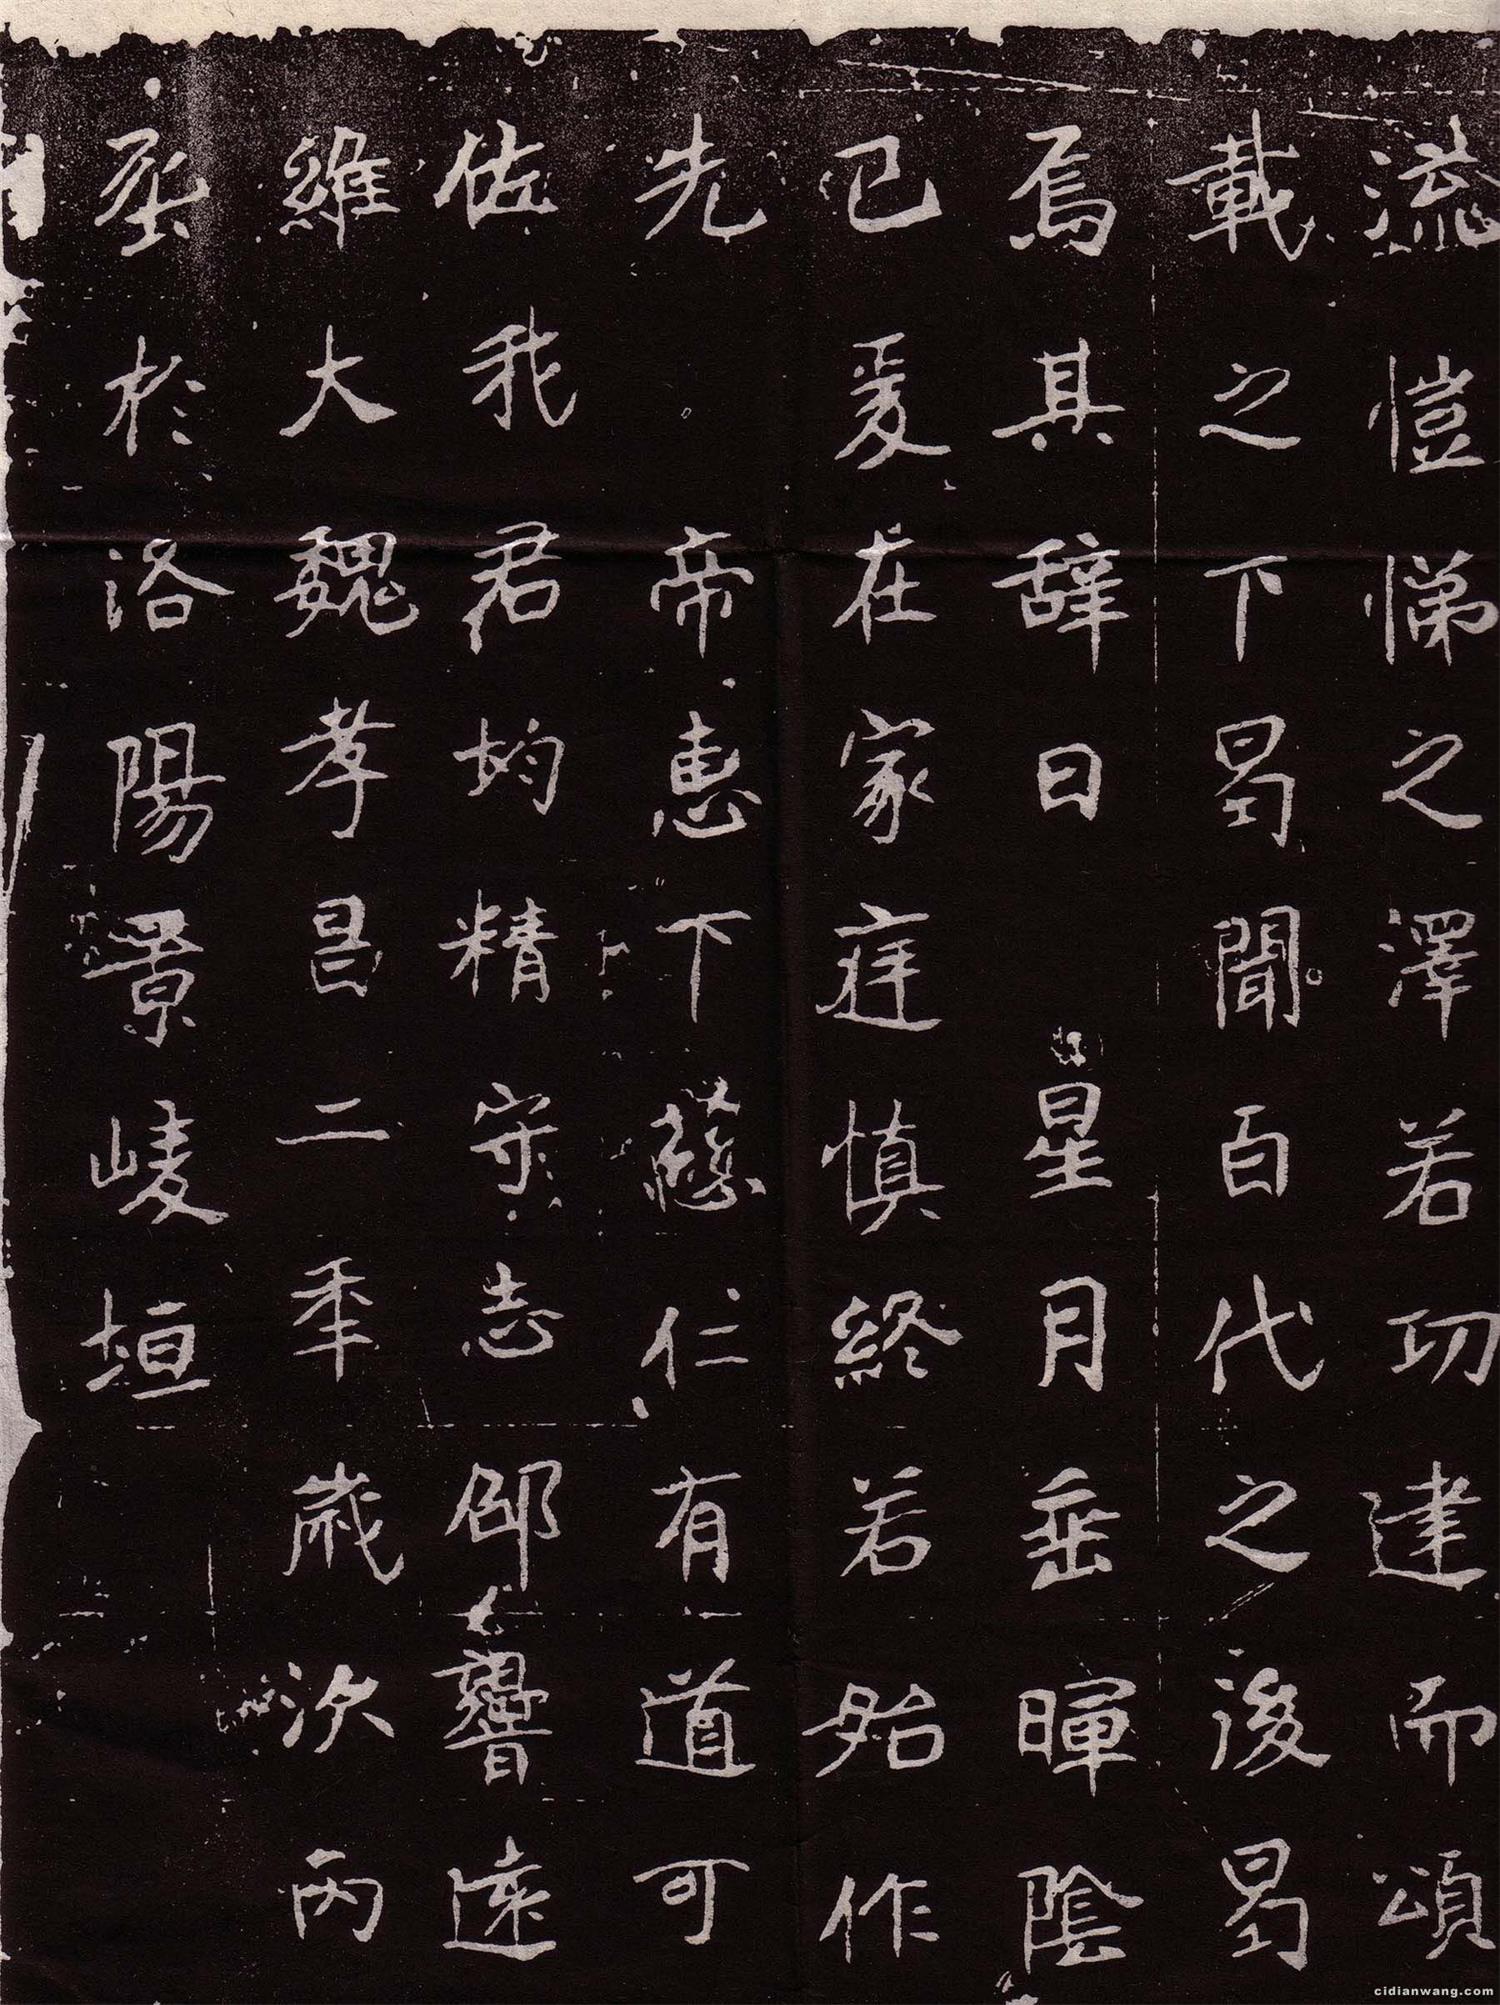 流愷悌之澤若功建而頌
載之下曷聞百代之後曷
焉其辭曰星月垂暉陰
已爰在家庭慎終若始作
先帝惠下慈仁有道可
佐我君均精守志邵響遠
維大魏孝昌二年歲次丙
於洛陽景陵垣
cidianwang.com